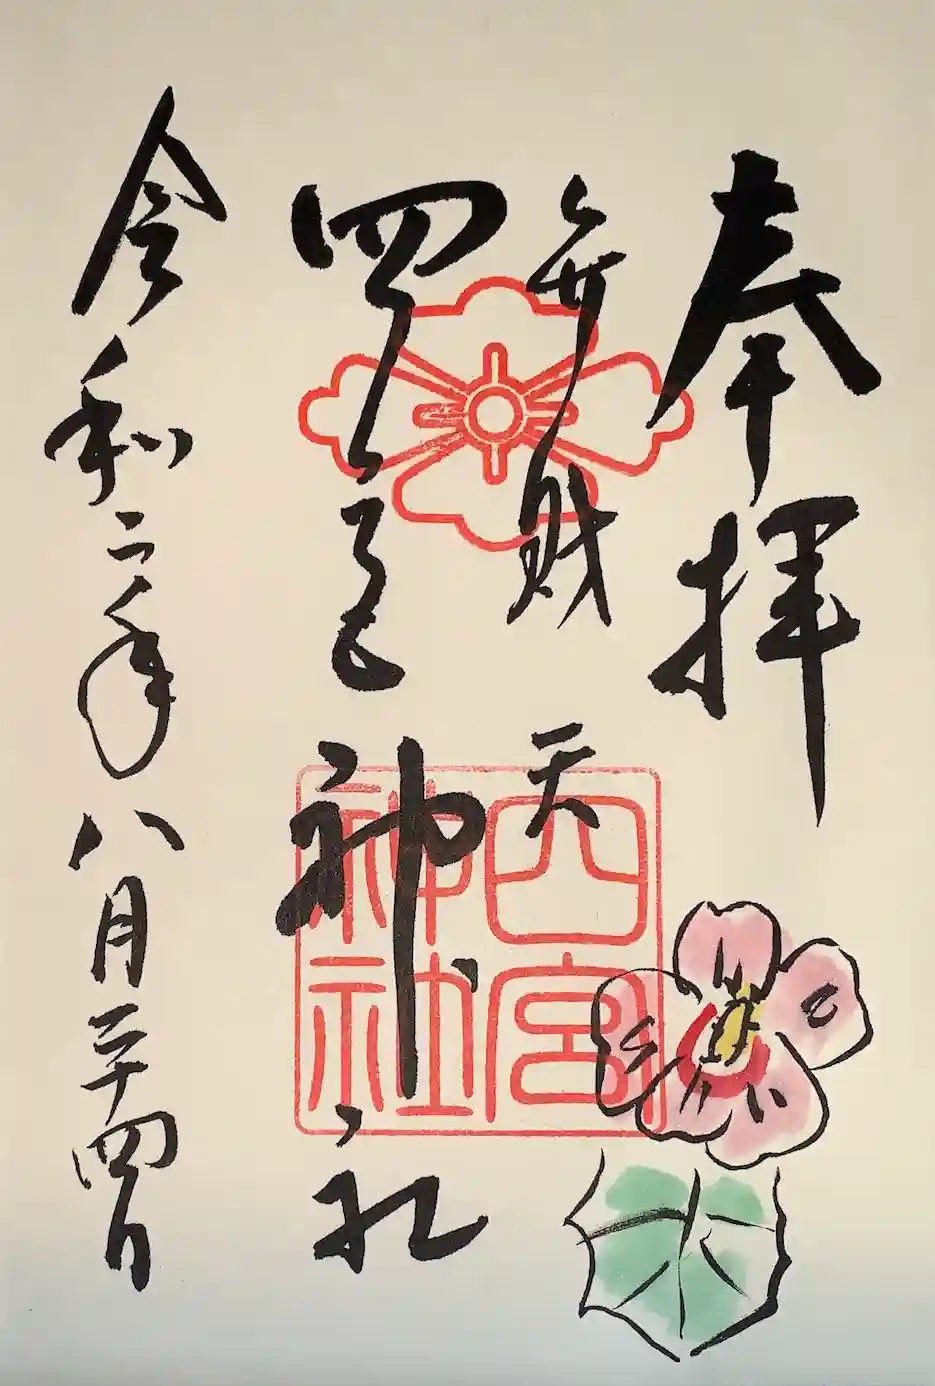 奉拝
弁財天
四宮神社
令和二年八月二十四日
四宮
神社